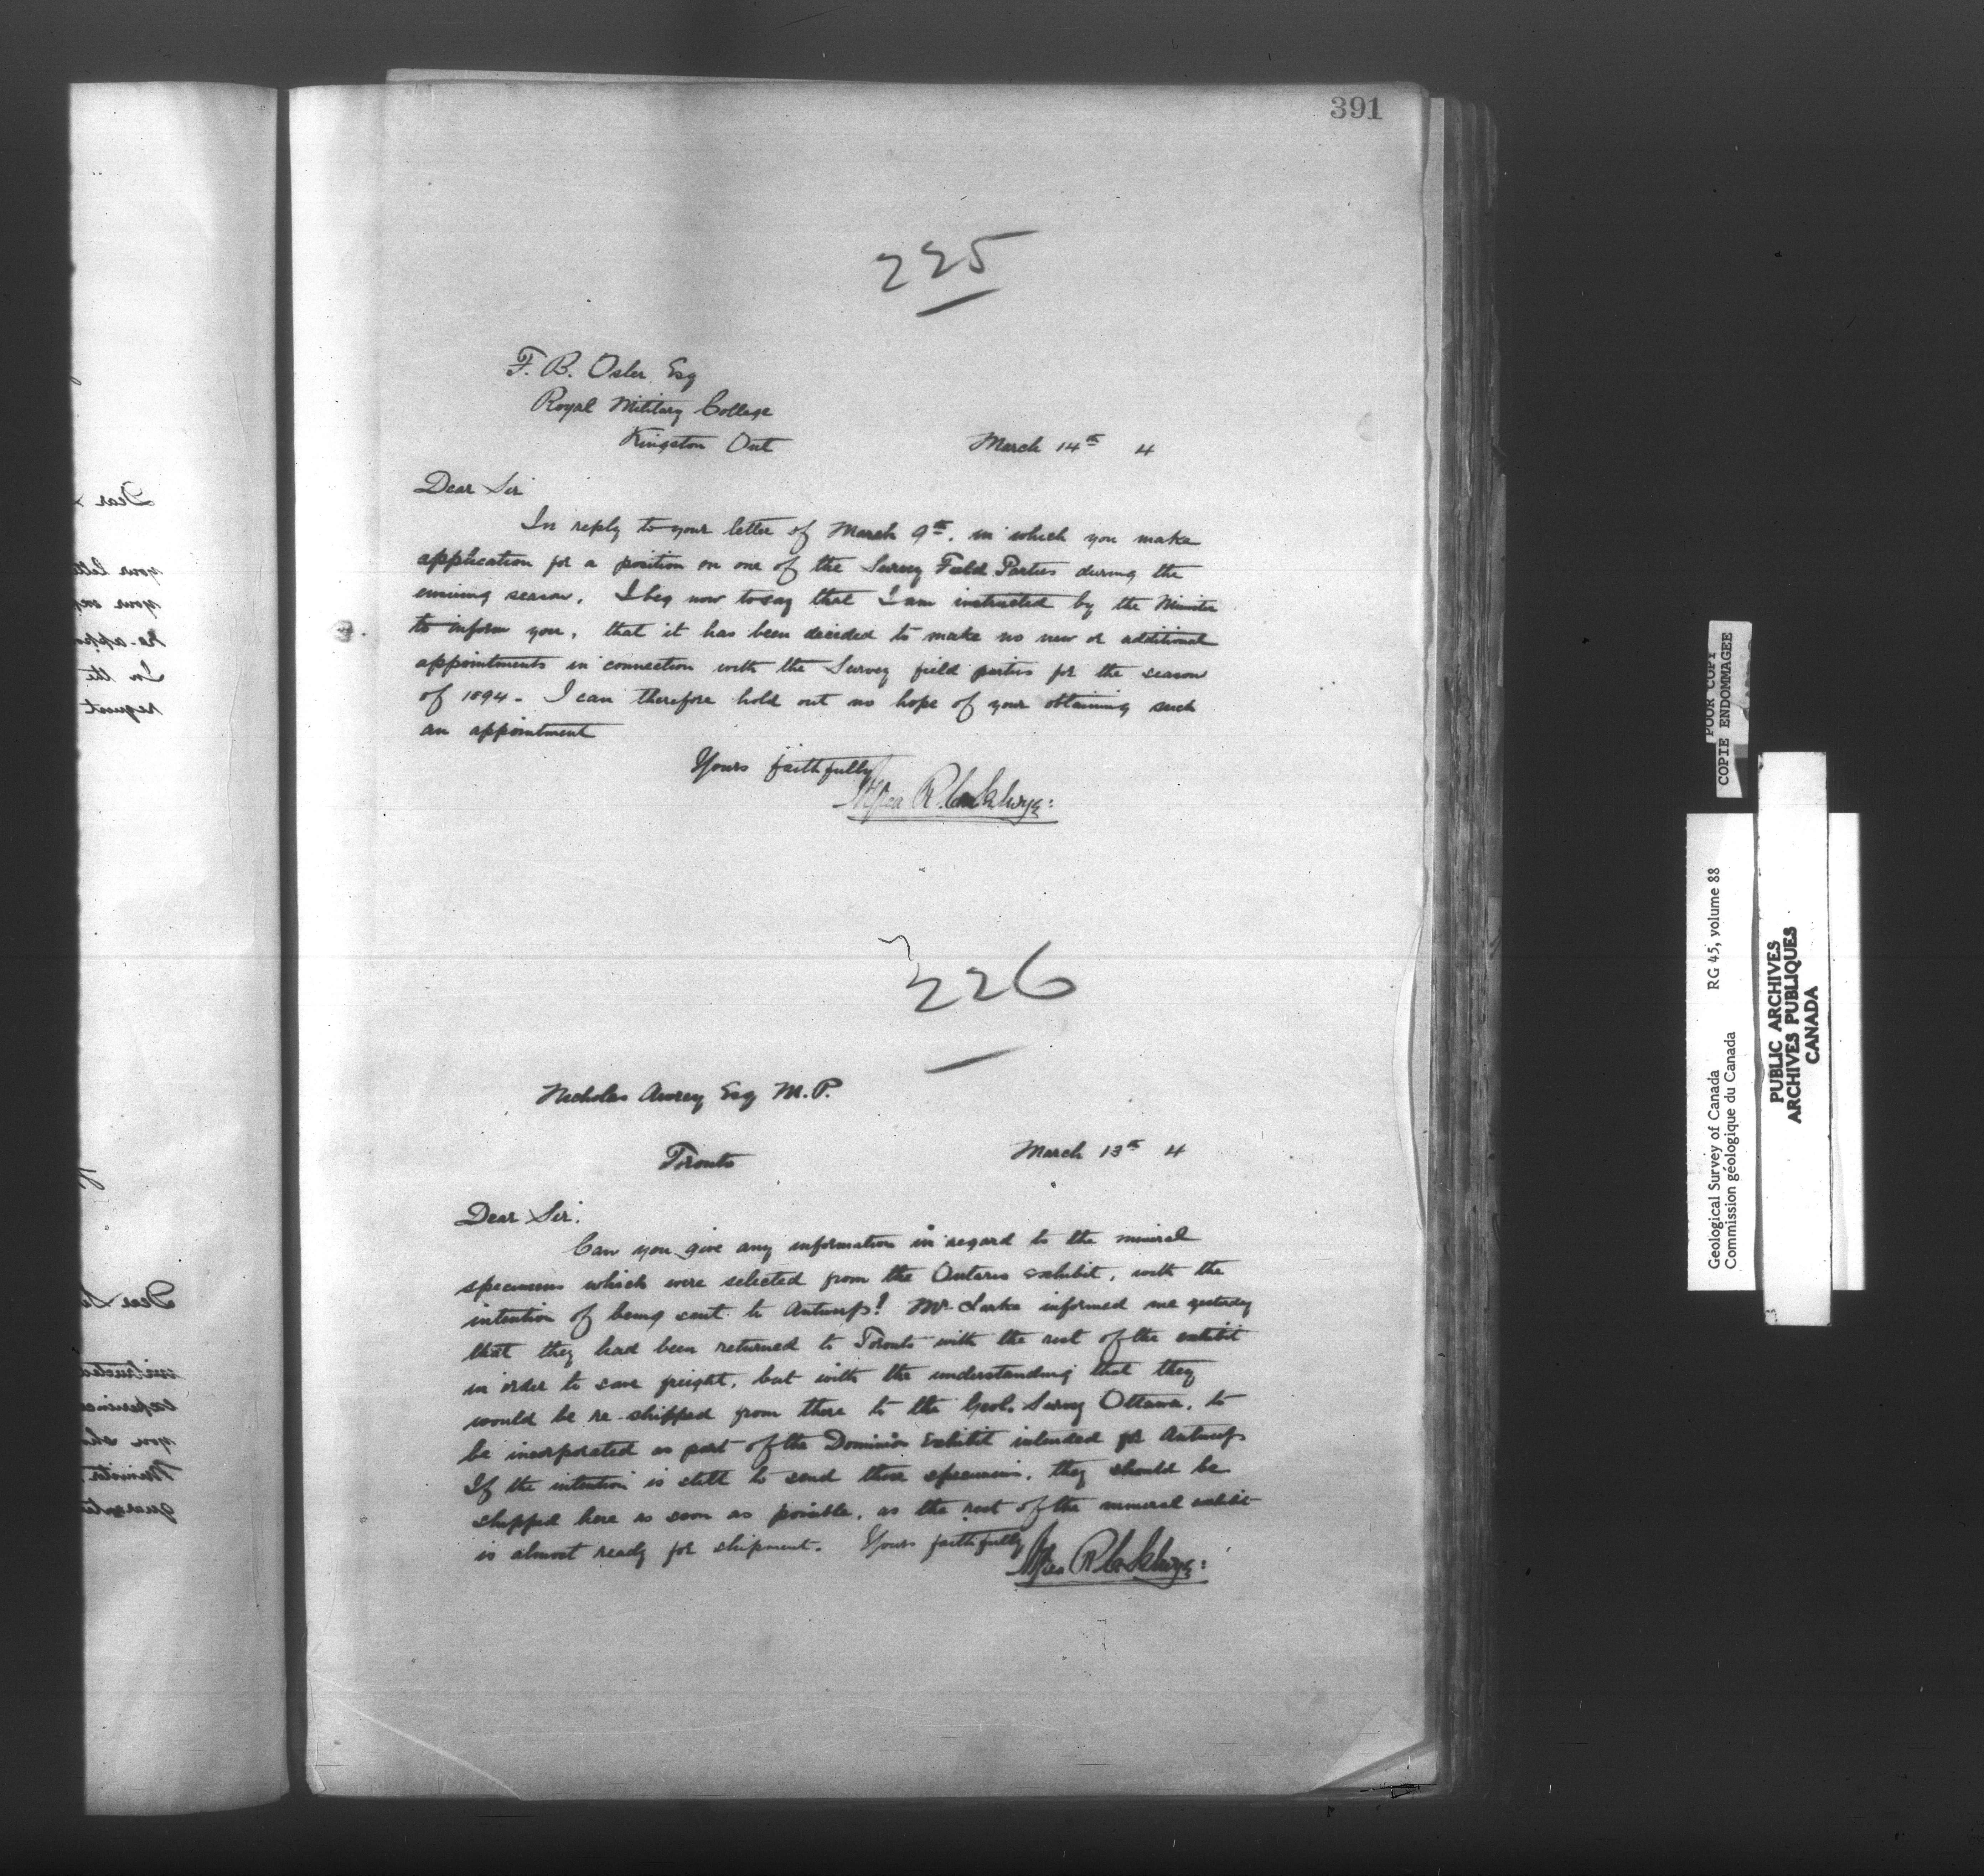 391
225
F. B. Osler Esq
Royal Military College
Kingston Ont
March 14th 4
Dear Sir
In reply to your letter of March 9th, in which you make
application for a position on one of the Survey Field Parties during the
ensuing season. I beg now to say that I am instructed by the Minister
to inform you, that it has been decided to make no new or additional
appointments in connection with the Survey field parties for the season
of 1894. I can therefore hold out no hope of your obtaining such
an appointment
Yours faithfully
Alfred R. C. Selwyn
226
Nicholas Awrey Esq M.P.
Toronto
March 13th 4
Dear Sir.
Can you give any information in regard to the mineral
specimens which were selected from the Ontario exhibit, with the
intention of being sent to Antwerp? Mr. Larke informed me yesterday
that they had been returned to Toronto with the rest of the exhibit
in order to save freight, but with the understanding that they
would be re-shipped from there to the Geol. Survey Ottawa, to
be incorporated as part of the Dominion Exhibit intended for Antwerp
If the intention is still to send those specimens, they should be
shipped here as soon as possible, as the rest of the mineral exhibit
is almost ready for shipment. Yours faithfully
Alfred R. C. Selwyn
Dear
your
your
re-app
In the
request
Dear
instructed
experience
you
Minister
POOR COPY
COPIE ENDOMMAGEE
Geological Survey of Canada RG 45, volume 88
Commission géologique du Canada
PUBLIC ARCHIVES
ARCHIVES PUBLIQUES
CANADA